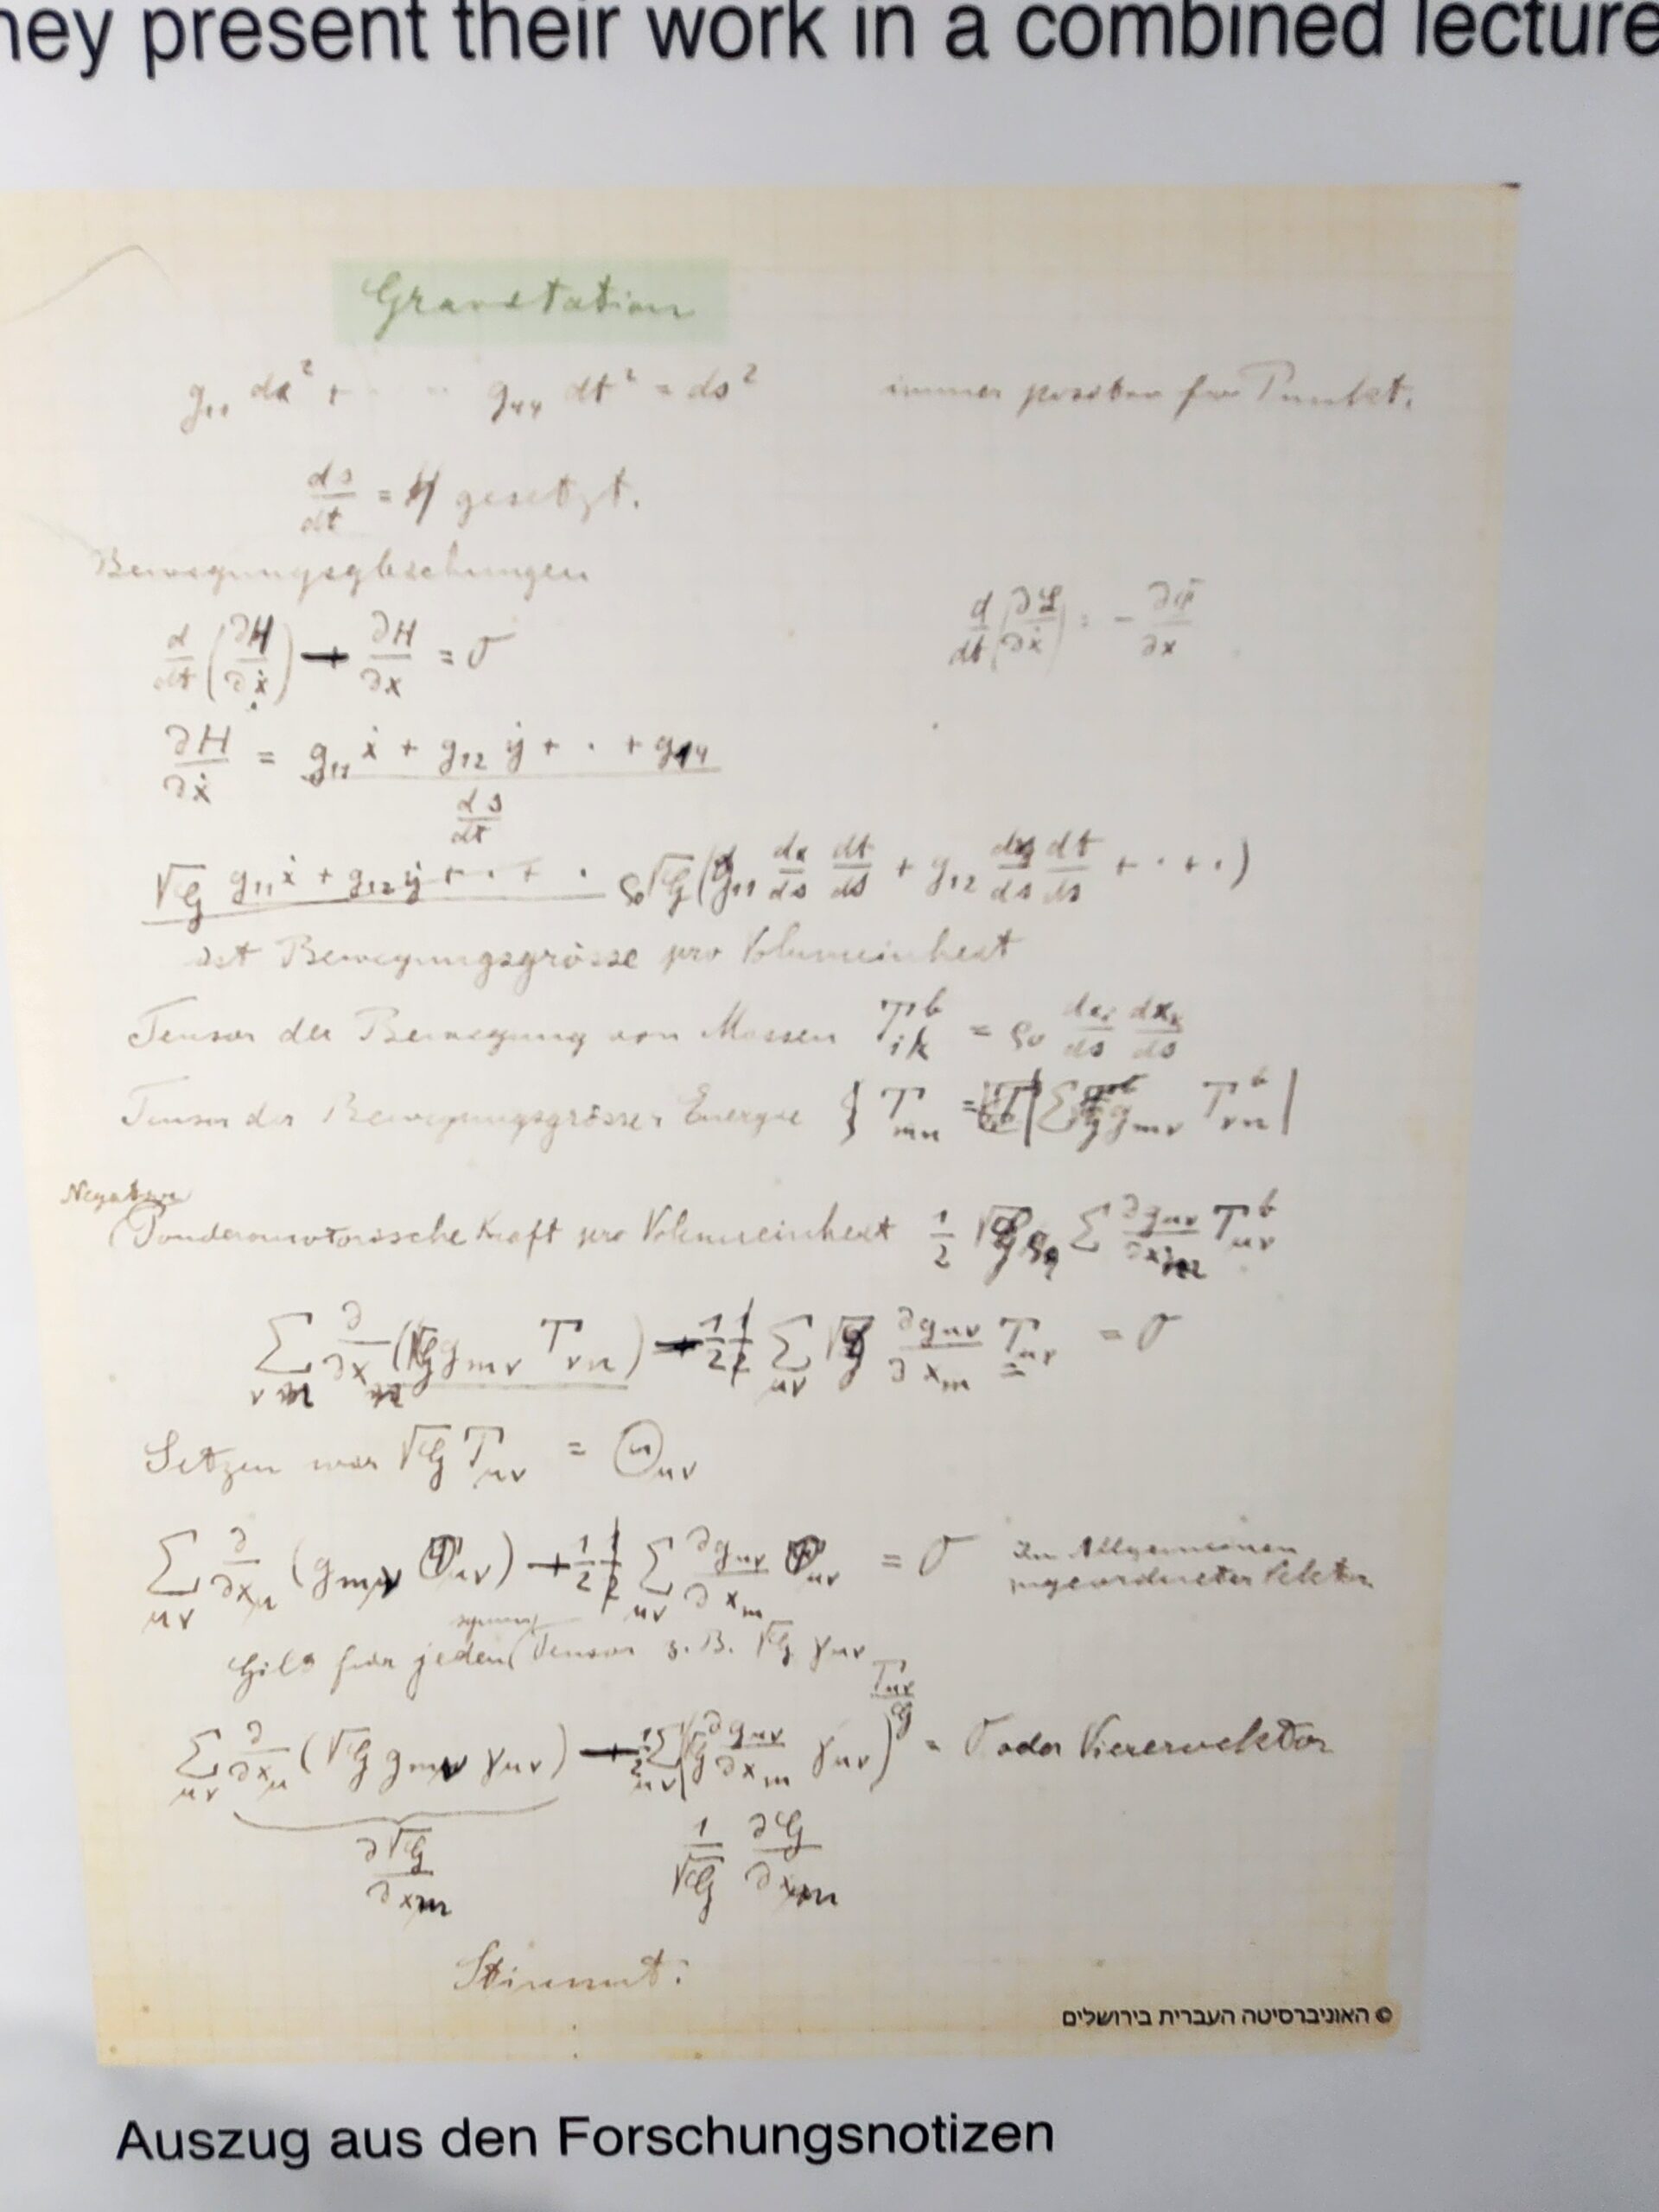 hey present their work in a combined lecture
Gravitation
g₁₁ dx² + · · · g₄₄ dt² = ds² immer positiv für Punkt.
ds/dt = H gesetzt.
Bewegungsgleichungen
d/dt (∂H/∂ẋ) − ∂H/∂x = 0 d/dt (∂L/∂ẋ) = − ∂Φ/∂x
∂H/∂ẋ = (g₁₁ ẋ + g₁₂ ẏ + · + g₁₄) / (ds/dt)
√G g₁₁ẋ + g₁₂ẏ + · · + · ρ₀√G (g₁₁ dx/ds dt/ds + g₁₂ dy/ds dt/ds + · + ·)
ist Bewegungsgrösse pro Volumeinheit
Tensor der Bewegung von Massen Tᵇᵢₖ = ρ₀ dxᵢ/ds dxₖ/ds
Tensor der Bewegungsgrösse u. Energie Tₘₙ = Σ √G gₘᵥ Tᵇᵥₙ
Negative
Ponderomotorische Kraft pro Volumeinheit 1/2 √G Σ ∂g_μν/∂xₘ Tᵇ_μν
Σ_νn ∂/∂xₙ (√G g_mν T_νn) − 1/2 Σ_μν √G ∂g_μν/∂xₘ T_μν = 0
Setzen wir √G T_μν = Θ_μν
Σ_μν ∂/∂x_μ (g_mν Θ_μν) − 1/2 Σ_μν ∂g_μν/∂xₘ Θ_μν = 0 Im Allgemeinen
zugeordneter Vektor
symm
Gilt für jeden Tensor z. B. √G γ_μν
T_μν/G
Σ_μν ∂/∂x_μ (√G g_mν γ_μν) − 1/2 Σ_μν (√G ∂g_μν/∂xₘ γ_μν) = 0 oder Vierervektor
∂√G/∂xₘ 1/√G ∂G/∂xₘ
Stimmt:
© האוניברסיטה העברית בירושלים
Auszug aus den Forschungsnotizen